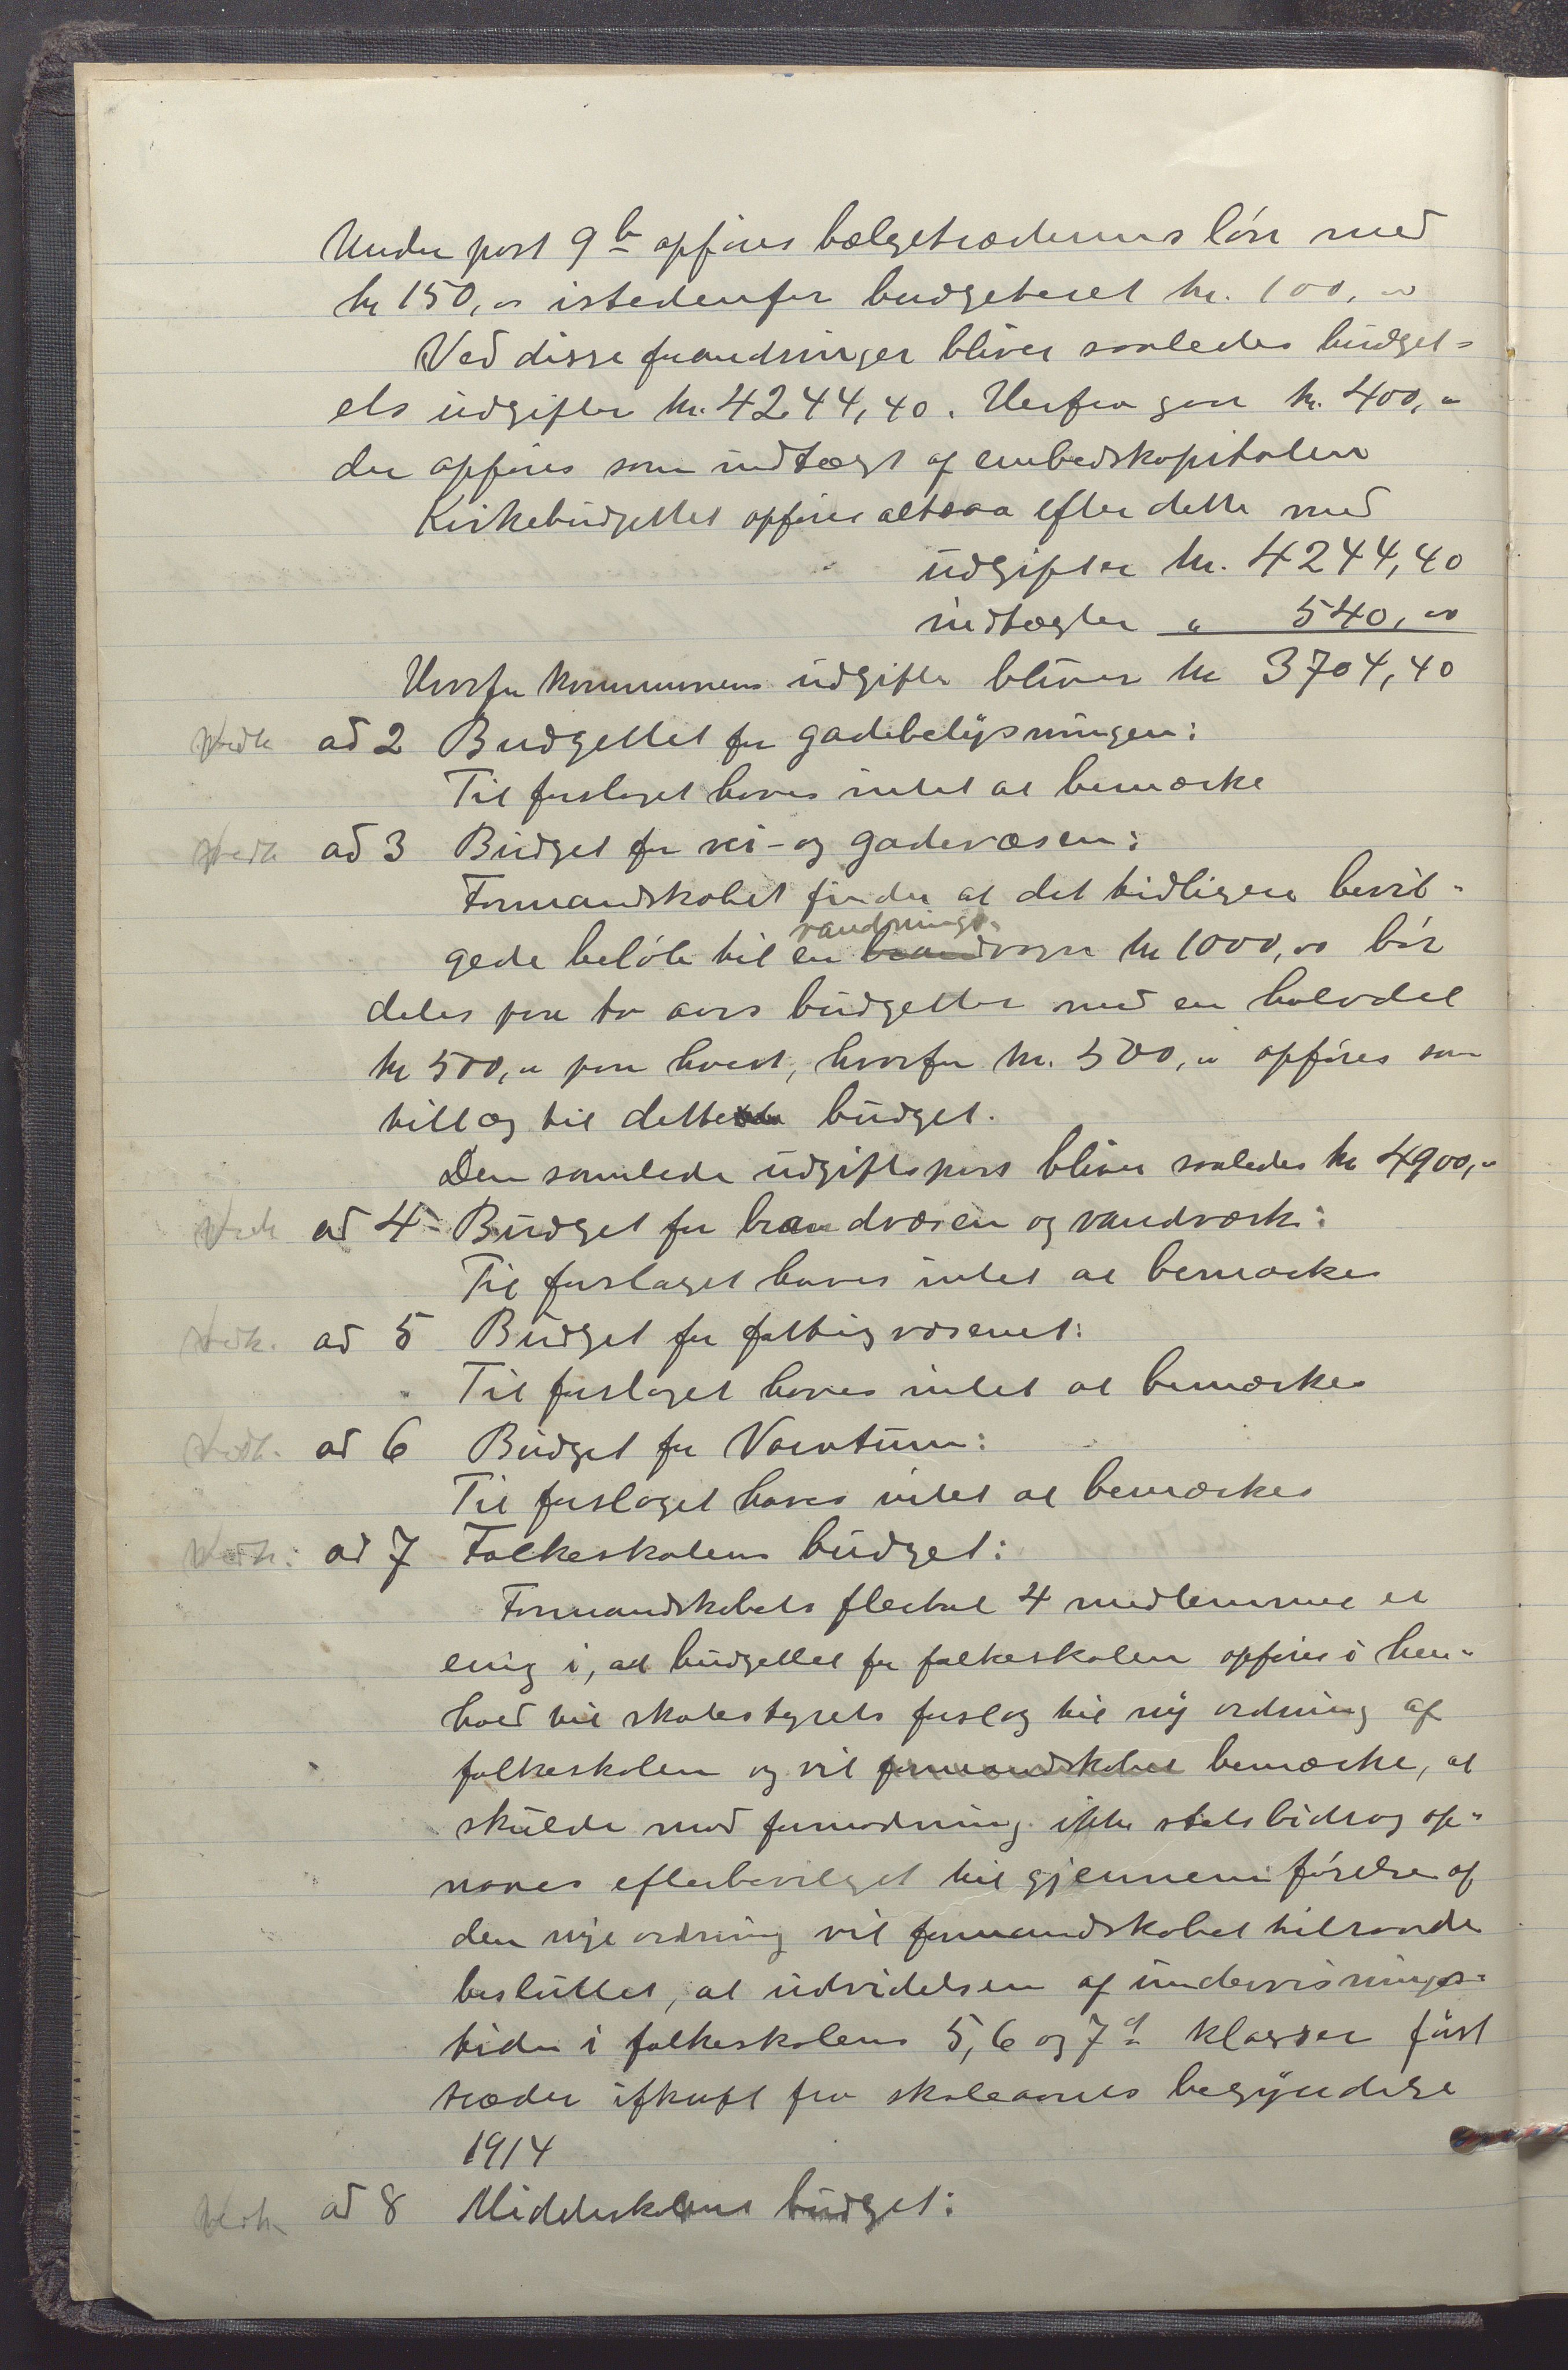 Under post 9 b opføres bælgetræderens løn med
kr 150,00 istedenfor budgeteret kr. 100,00
Ved disse forandringer bliver saaledes budget-
ets udgifter kr. 4244,40. Herfra gaar kr. 400,00
der opføres som indtægt af embedskapitalen
Kirkebudgettet opføres altsaa efter dette med
udgifter kr. 4244,40
indtægter " 540,00
Hvorfor kommunens udgifter bliver kr 3704,40
Vedt. ad 2 Budgettet for gadebelysningen:
Til forslaget haves intet at bemærke
Vedt. ad 3 Budget for vei- og gadevæsen:
Formandskabet finder at det tidligere bevil-
vandnings-
gede beløb til en brandvogn kr 1000,00 bør
deles paa to aars budgetter med en halvdel
kr 500,00 paa hvert, hvorfor kr. 500,00 opføres som
tillæg til dette budget.
Den samlede udgiftspost bliver saaledes kr 4900,00
Vedt. ad 4 Budget for brandvæsen og vandværk:
Til forslaget haves intet at bemærkes
Vedt. ad 5 Budget for fattigvæsenet:
Til forslaget haves intet at bemærkes
Vedt. ad 6 Budget for Varatun:
Til forslaget haves intet at bemærkes
Vedt. ad 7 Folkeskolens budget:
Formandskabets flertal 4 medlemmer er
enig i, at budgettet for folkeskolen opføres i hen-
hold til skolestyrets forslag til ny ordning af
folkeskolen og vil formandskabet bemærke, at
skulde mod formodning ikke statsbidrag op-
naaes efterbevilget til gjennemførelse af
den nye ordning vil formandskabet tilraade
besluttet, at udvidelsen af undervisnings-
tiden i folkeskolens 5, 6 og 7de klasser først
træder ifkraft fra skoleaarets begyndelse
1914
Vedt. ad 8 Middelskolens budget: